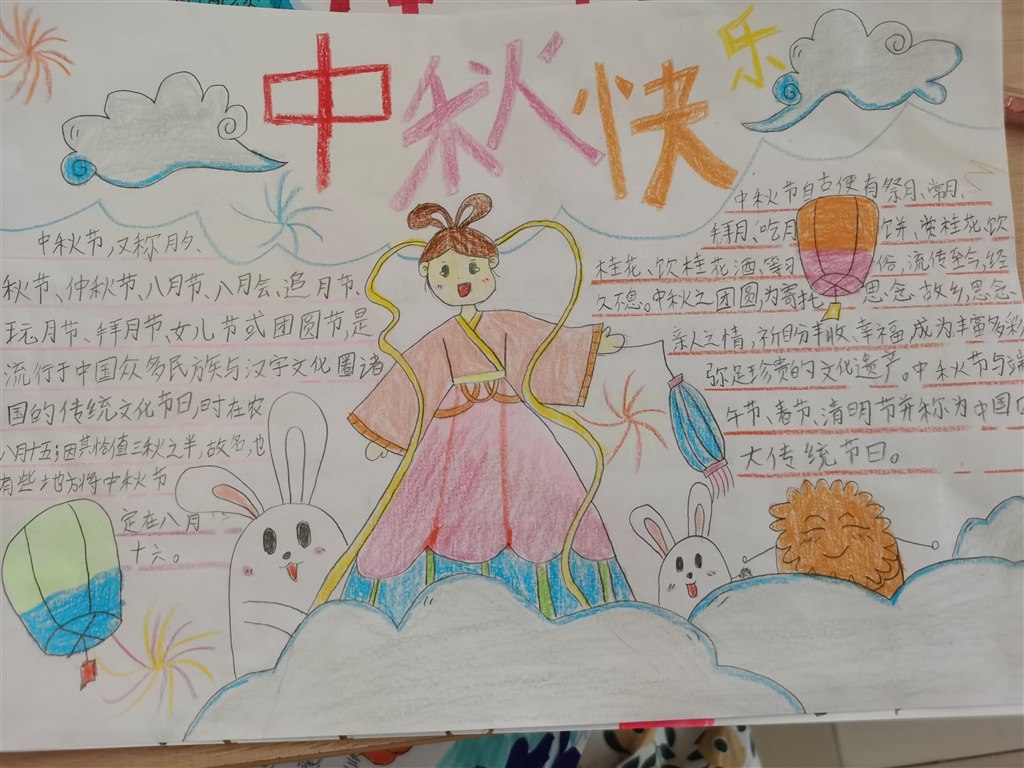 中秋快乐
中秋节,又称月夕、
秋节、仲秋节、八月节、八月会、追月节、
玩月节、拜月节、女儿节或团圆节,是
流行于中国众多民族与汉字文化圈诸
国的传统文化节日,时在农
八月十五;因其恰值三秋之半,故名,也
有些地方将中秋节
定在八月
十六。
中秋节自古便有祭月、赏月、
拜月、吃月饼、赏桂花、饮
桂花、饮桂花酒等习俗,流传至今,经
久不息。中秋之团圆,为寄托思念故乡,思念
亲人之情,祈盼丰收、幸福,成为丰富多彩
弥足珍贵的文化遗产。中秋节与端
午节、春节、清明节并称为中国四
大传统节日。